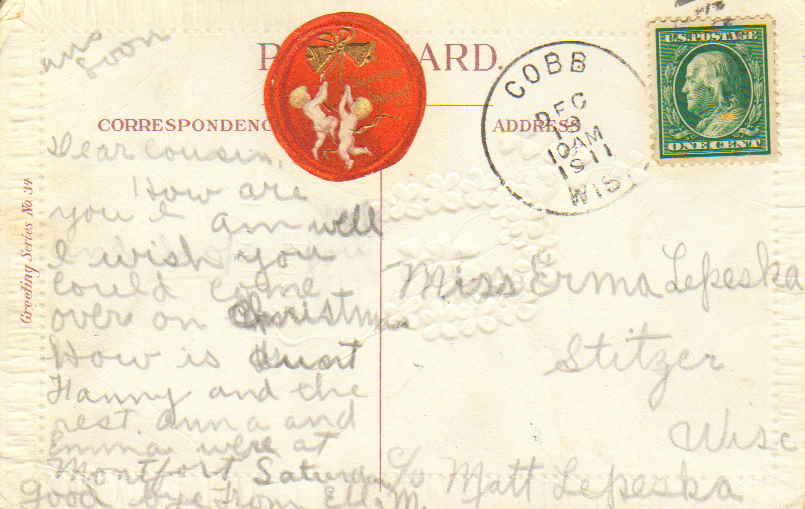 ans
soon
U.S. POSTAGE
ONE CENT
P CARD.
COBB
DEC
10AM
1911
WIS.
CORRESPONDENC
ADDRESS
Greeting Series No 34
Dear cousin,
How are
you I am well
I wish you
could come
over on Christmas
How is
Fanny and the
rest. anna and
Emma were at
Montfort Saturday
Good bye From M.
Miss Erma Lepeska
Stitzer
Wisc
c/o Matt Lepeska